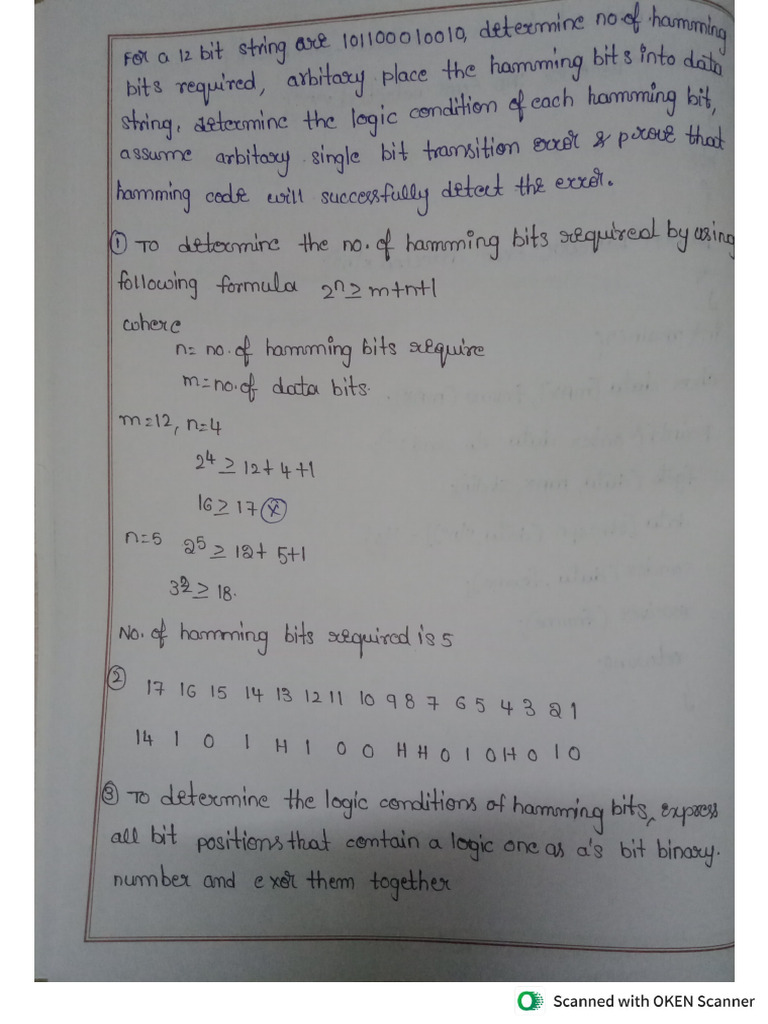 For a 12 bit string are 101100010010, determine no of hamming
bits required, arbitary place the hamming bits into data
string, determine the logic condition of each hamming bit,
assume arbitary single bit transition error & prove that
hamming code will successfully detect the error.
① To determine the no. of hamming bits required by using
following formula 2ⁿ ≥ m+n+1
where
n = no. of hamming bits require
m = no. of data bits.
m=12, n=4
2⁴ ≥ 12+4+1
16 ≥ 17 ⓧ
n=5 2⁵ ≥ 12+ 5+1
32 ≥ 18.
No. of hamming bits required is 5
②
17 16 15 14 13 12 11 10 9 8 7 6 5 4 3 2 1
14 1 0 1 H 1 0 0 H H 0 1 0 H 0 1 0
③ To determine the logic conditions of hamming bits, express
all bit positions that contain a logic one as a's bit binary.
number and exor them together
Scanned with OKEN Scanner